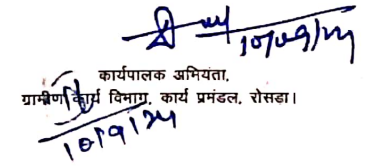 10/09/24
कार्यपालक अभियंता,
ग्रामीण कार्य विभाग, कार्य प्रमंडल, रोसड़ा।
10/9/24